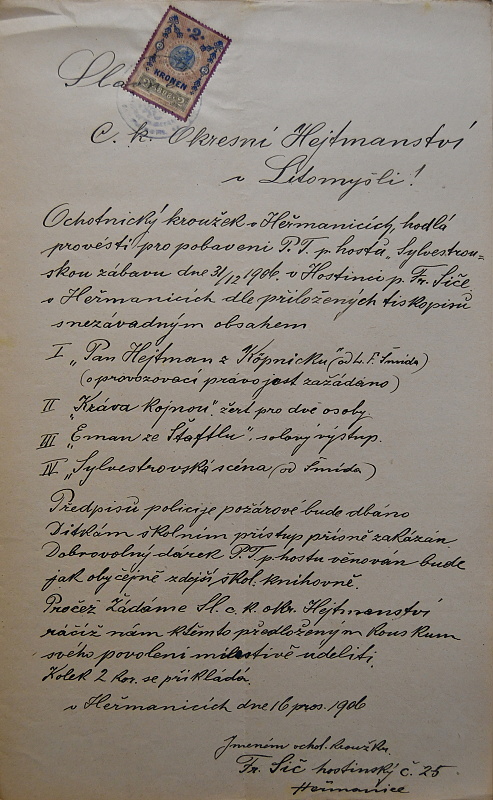 2
KRONEN
Slá
C. k. Okresní Hejtmanství
v Litomyšli!
Ochotnický kroužek v Heřmanicích, hodlá
provésti pro pobavení P.T. p. hostů „Sylvestrov=
skou zábavu dne 31/12 1906. v Hostinci p. Fr. Síče
v Heřmanicích dle přiložených tiskopisů
s nezávadným obsahem
I „Pan Hejtman z Köpnicku" (od L. F. Šmída)
(o provozovací právo jest zažádáno)
II „Kráva kojnou". žert pro dvě osoby.
III „Eman ze Štaftlu". solový výstup.
IV „Sylvestrovská scéna (od Šmída)
Předpisů policije požárové bude dbáno
Dítkám školním přístup přísně zakázán.
Dobrovolný dárek P.T. p. hostů věnován bude
jak obyčejně zdejší škol. knihovně.
Pročež Žádáme Sl. c. k. okr. Hejtmanství
ráčíž nám k těmto předloženým kouskum
svého povolení milostivě uděliti.
Kolek 2 kor. se přikládá.
v Heřmanicích dne 16 pros. 1906
Jménem ochot. kroužku.
Fr. Síč hostinský č. 25
Heřmanice